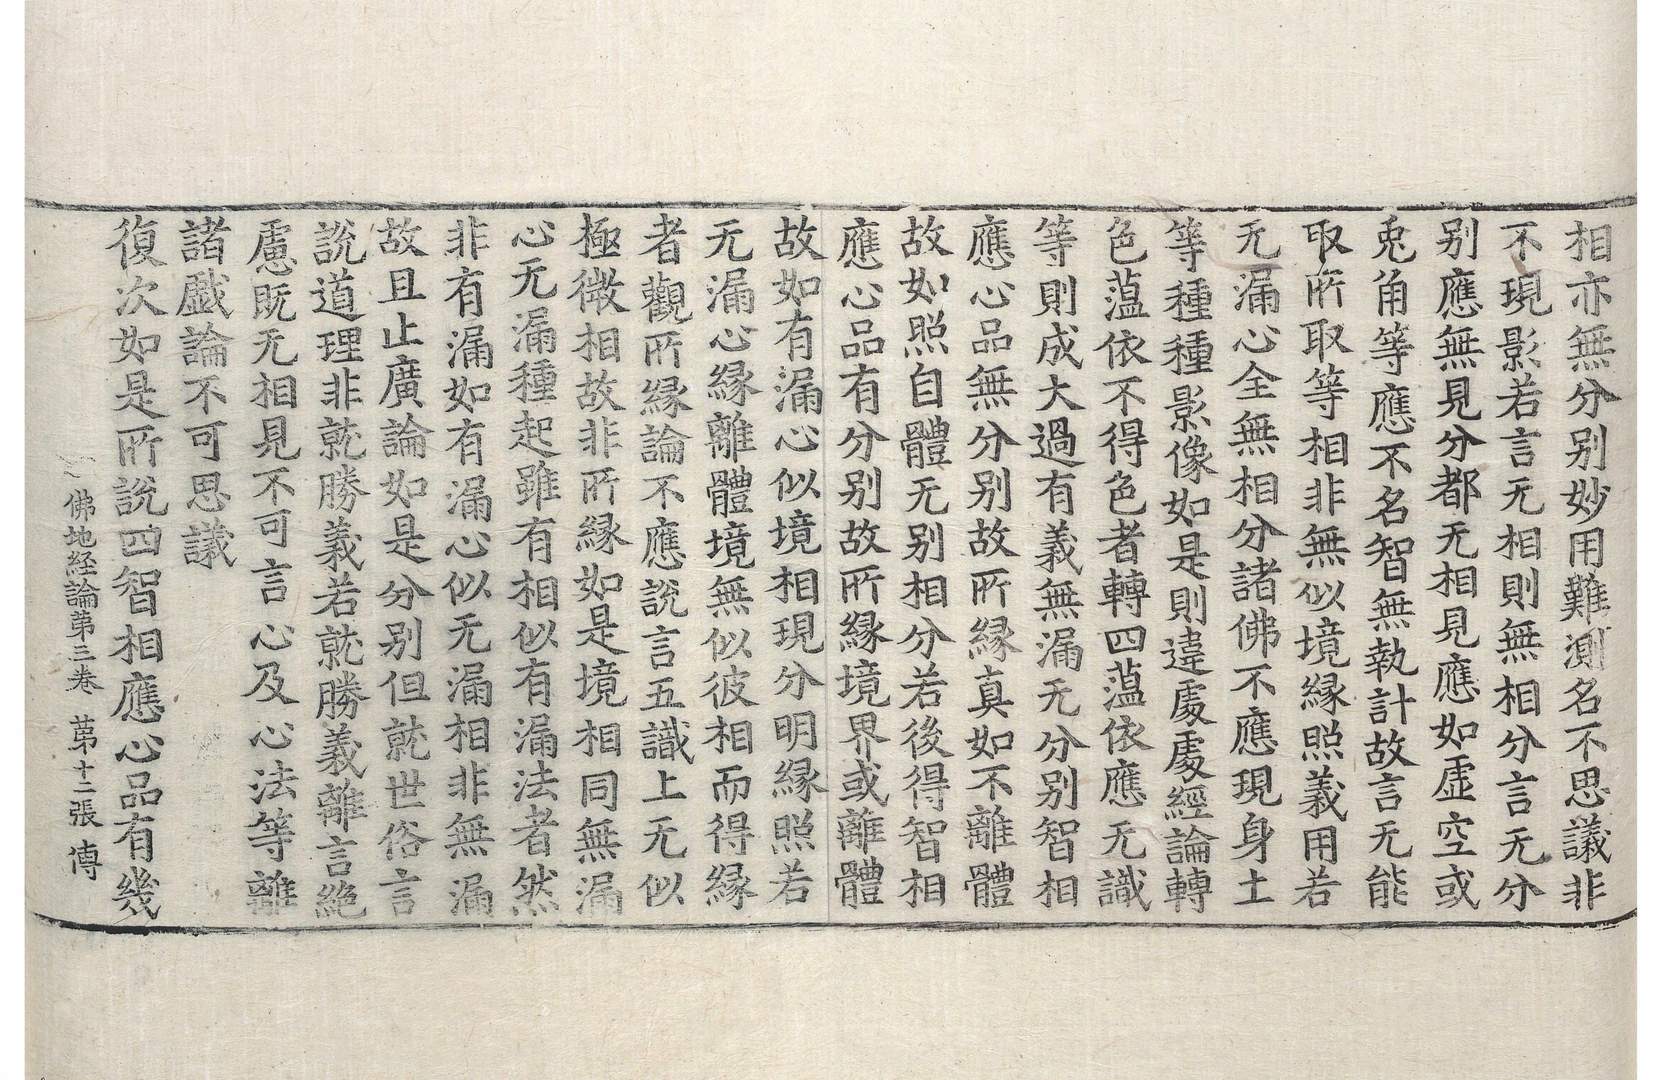 相亦無分別妙用難測名不思議非
不現影若言无相則無相分言无分
別應無見分都无相見應如虛空或
兎角等應不名智無執計故言无能
取所取等相非無似境縁照義用若
无漏心全無相分諸佛不應現身土
等種種影像如是則違處處經論轉
色薀依不得色者轉四薀依應无識
等則成大過有義無漏无分別智相
應心品無分別故所縁真如不離體
故如照自體无別相分若後得智相
應心品有分別故所縁境界或離體
故如有漏心似境相現分明縁照若
无漏心縁離體境無似彼相而得縁
者觀所縁論不應說言五識上无似
極微相故非所縁如是境相同無漏
心无漏種起雖有相似有漏法者然
非有漏如有漏心似无漏相非無漏
故且止廣論如是分別但就世俗言
說道理非就勝義若就勝義離言絕
慮既无相見不可言心及心法等離
諸戲論不可思議
復次如是所說四智相應心品有幾
佛地経論苐三卷 苐十二張 傅